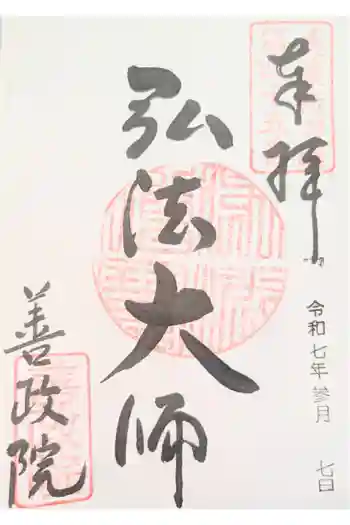 奉拝
令和七年参月 七日
弘法大師
善政院